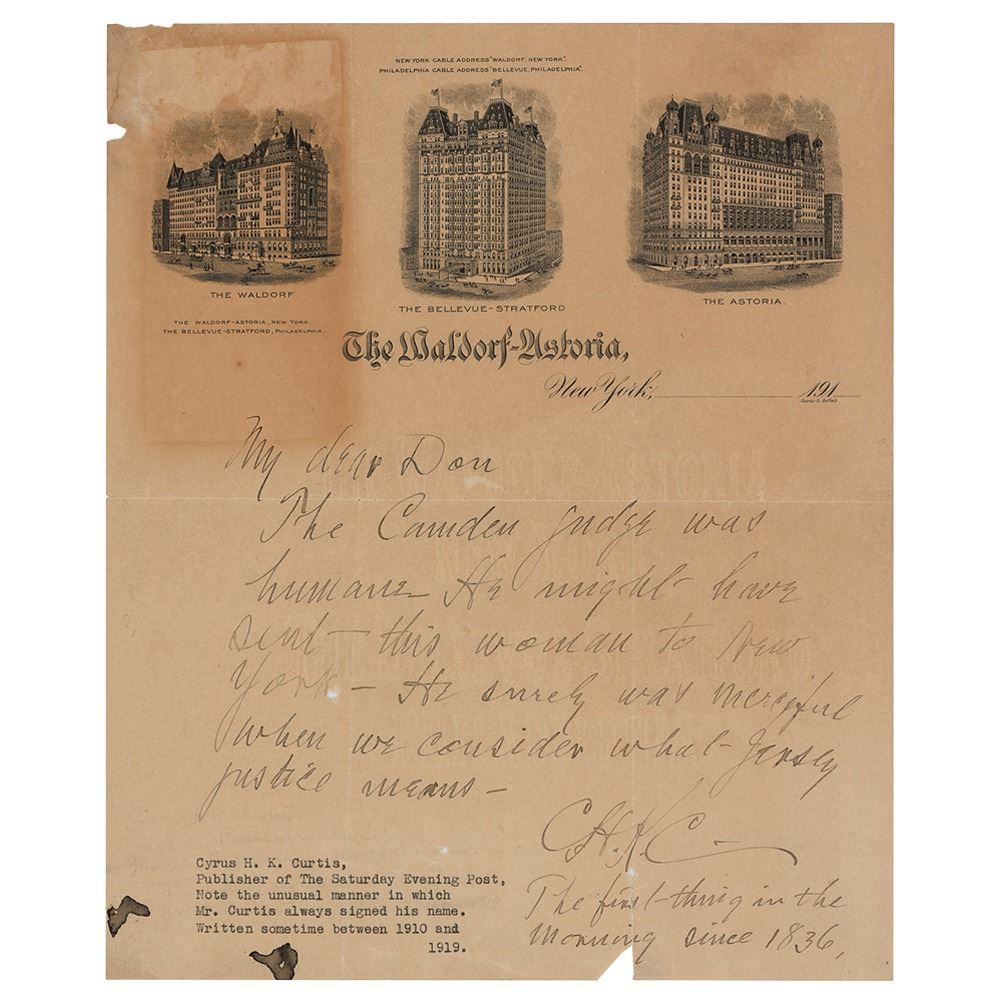 NEW YORK CABLE ADDRESS "WALDORF, NEW YORK".
PHILADELPHIA CABLE ADDRESS "BELLEVUE, PHILADELPHIA".
THE WALDORF
THE BELLEVUE-STRATFORD
THE ASTORIA.
THE WALDORF-ASTORIA, NEW YORK.
THE BELLEVUE-STRATFORD, PHILADELPHIA.
The Waldorf-Astoria,
New York, 191
My dear Don
The Camden judge was
humane He might have
sent this woman to New
York - He surely was merciful
when we consider what Jersey
justice means -
C.H.K.C.
The first thing in the
Morning since 1836,
Cyrus H. K. Curtis,
Publisher of The Saturday Evening Post,
Note the unusual manner in which
Mr. Curtis always signed his name.
Written sometime between 1910 and
1919.